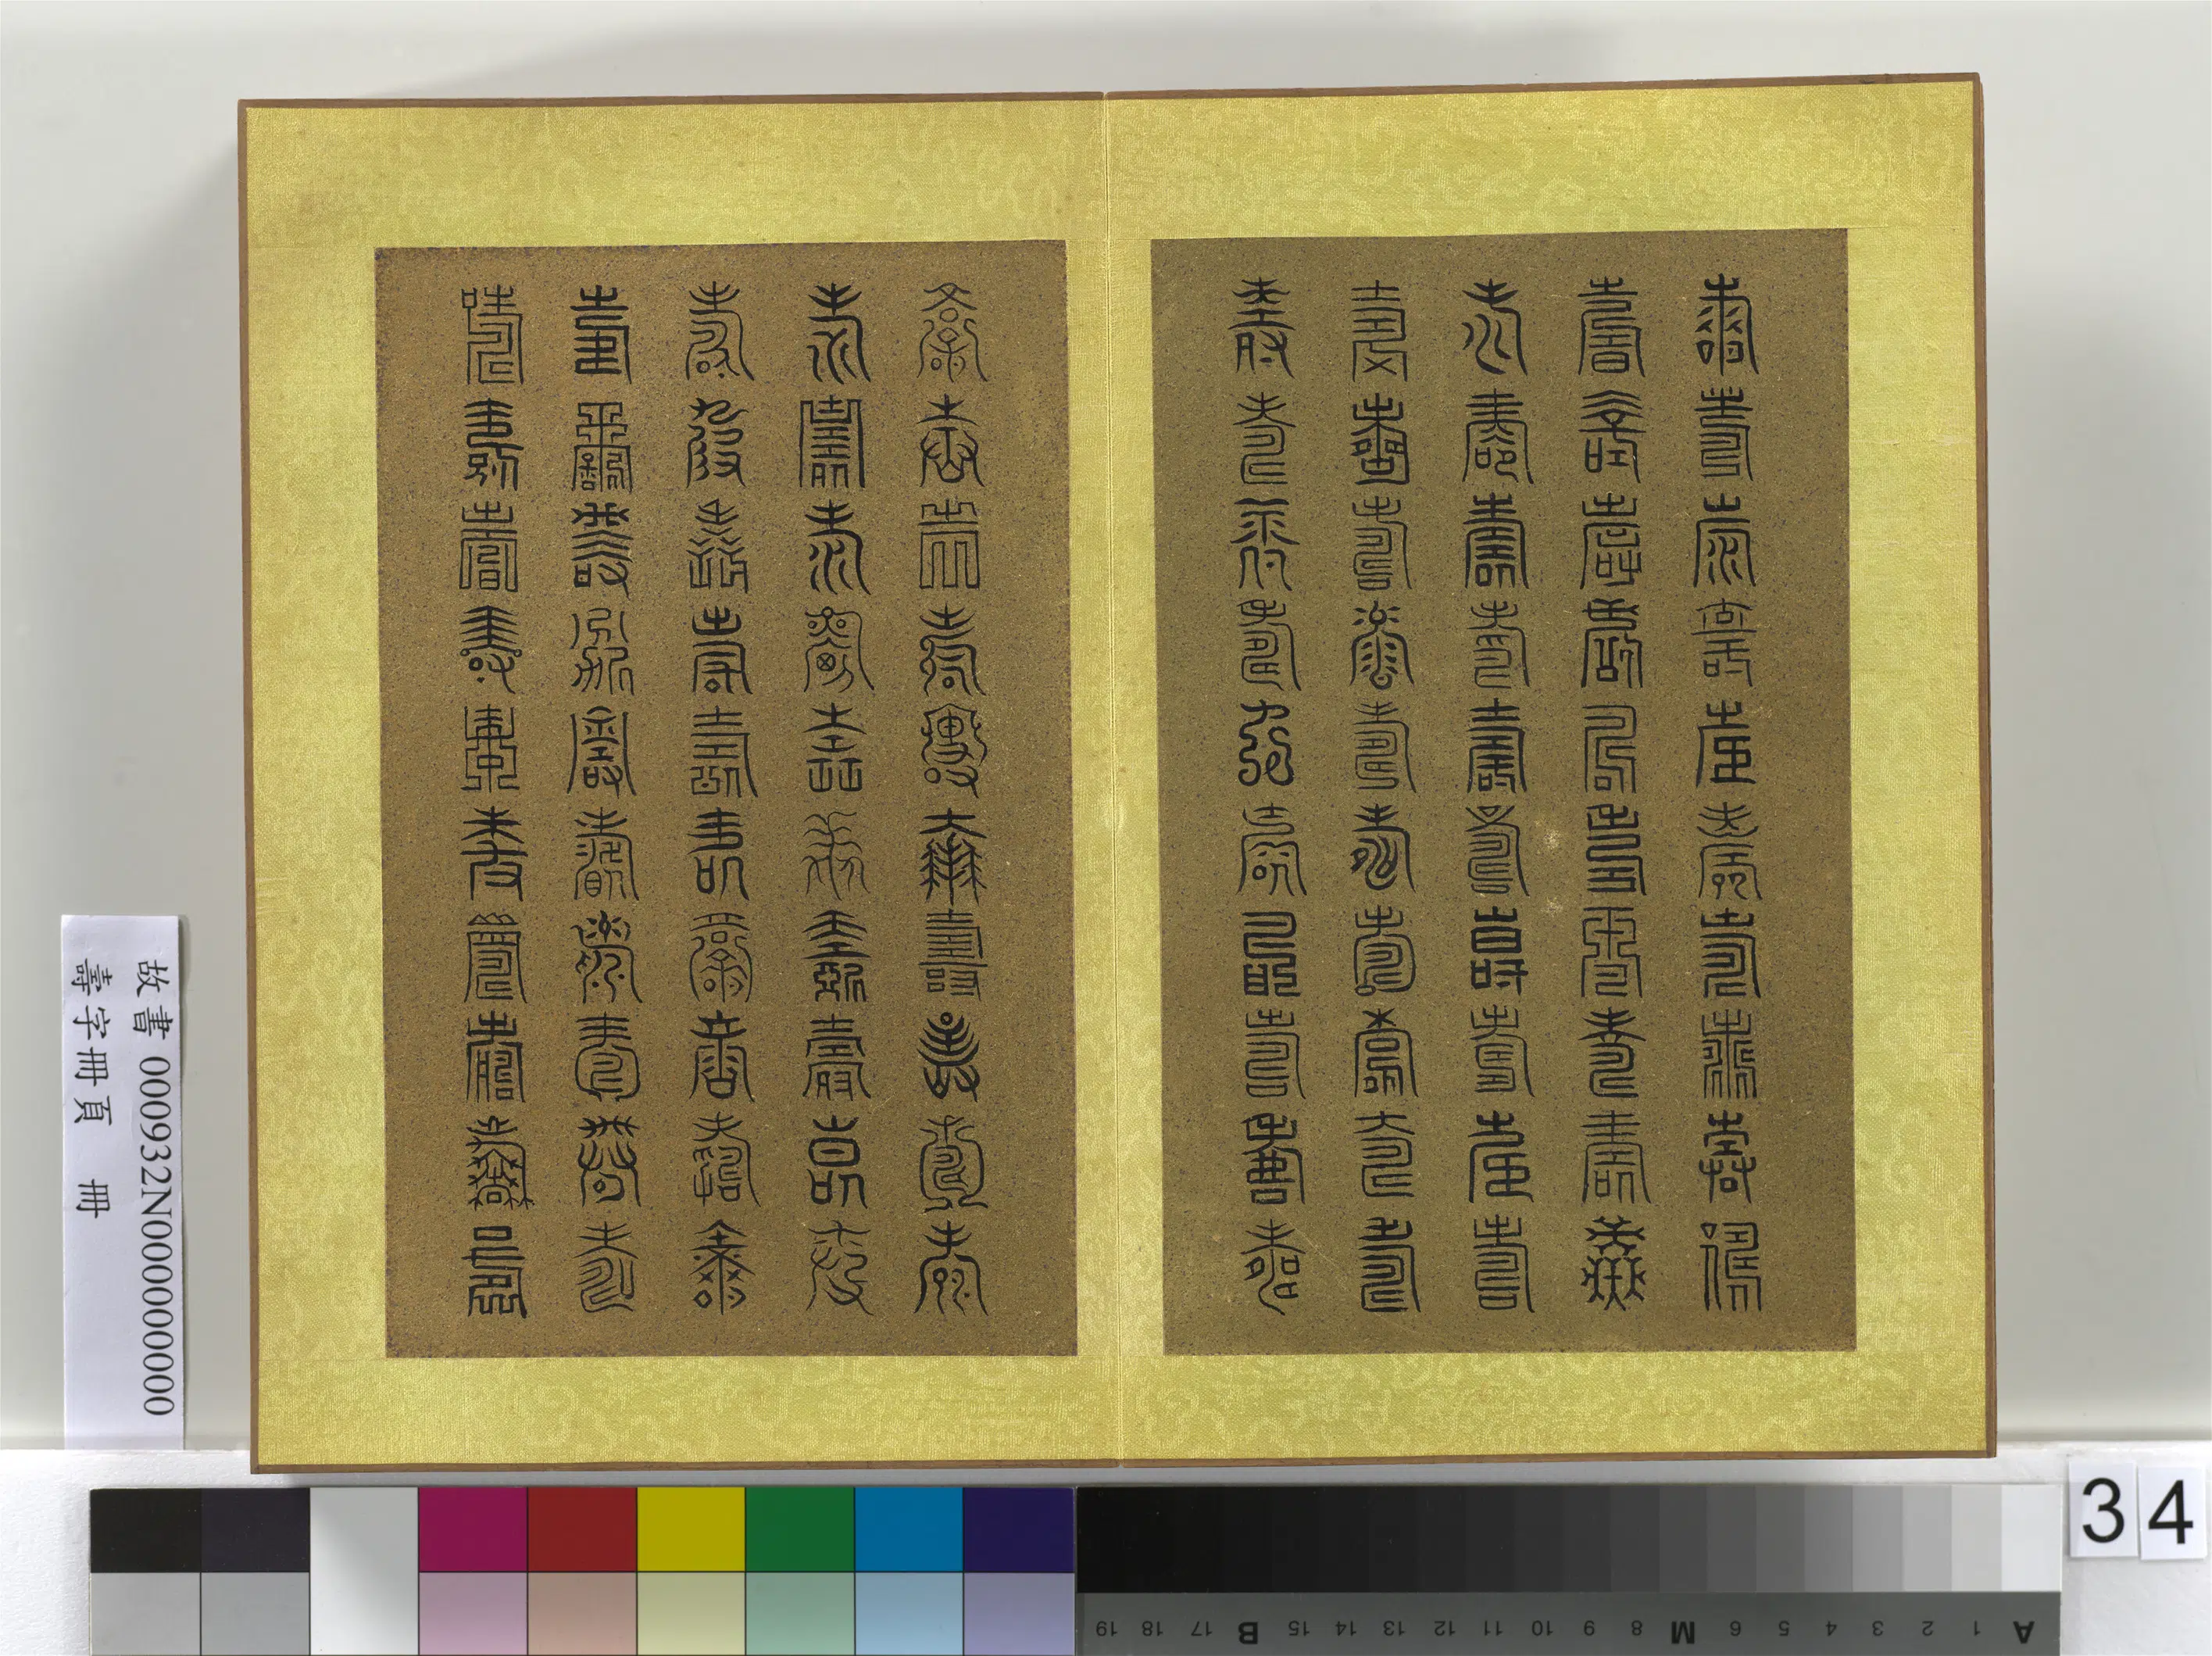 壽壽壽壽壽壽壽壽壽壽
壽壽壽壽壽壽壽壽壽壽
壽壽壽壽壽壽壽壽壽壽
壽壽壽壽壽壽壽壽壽壽
壽壽壽壽壽壽壽壽壽壽
壽壽壽壽壽壽壽壽壽壽
壽壽壽壽壽壽壽壽壽壽
壽壽壽壽壽壽壽壽壽壽
壽壽壽壽壽壽壽壽壽壽
壽壽壽壽壽壽壽壽壽壽
故書 000932N000000000
壽字冊頁 冊
A 1 2 3 4 5 6 M 8 9 10 11 12 13 14 15 B 17 18 19
34